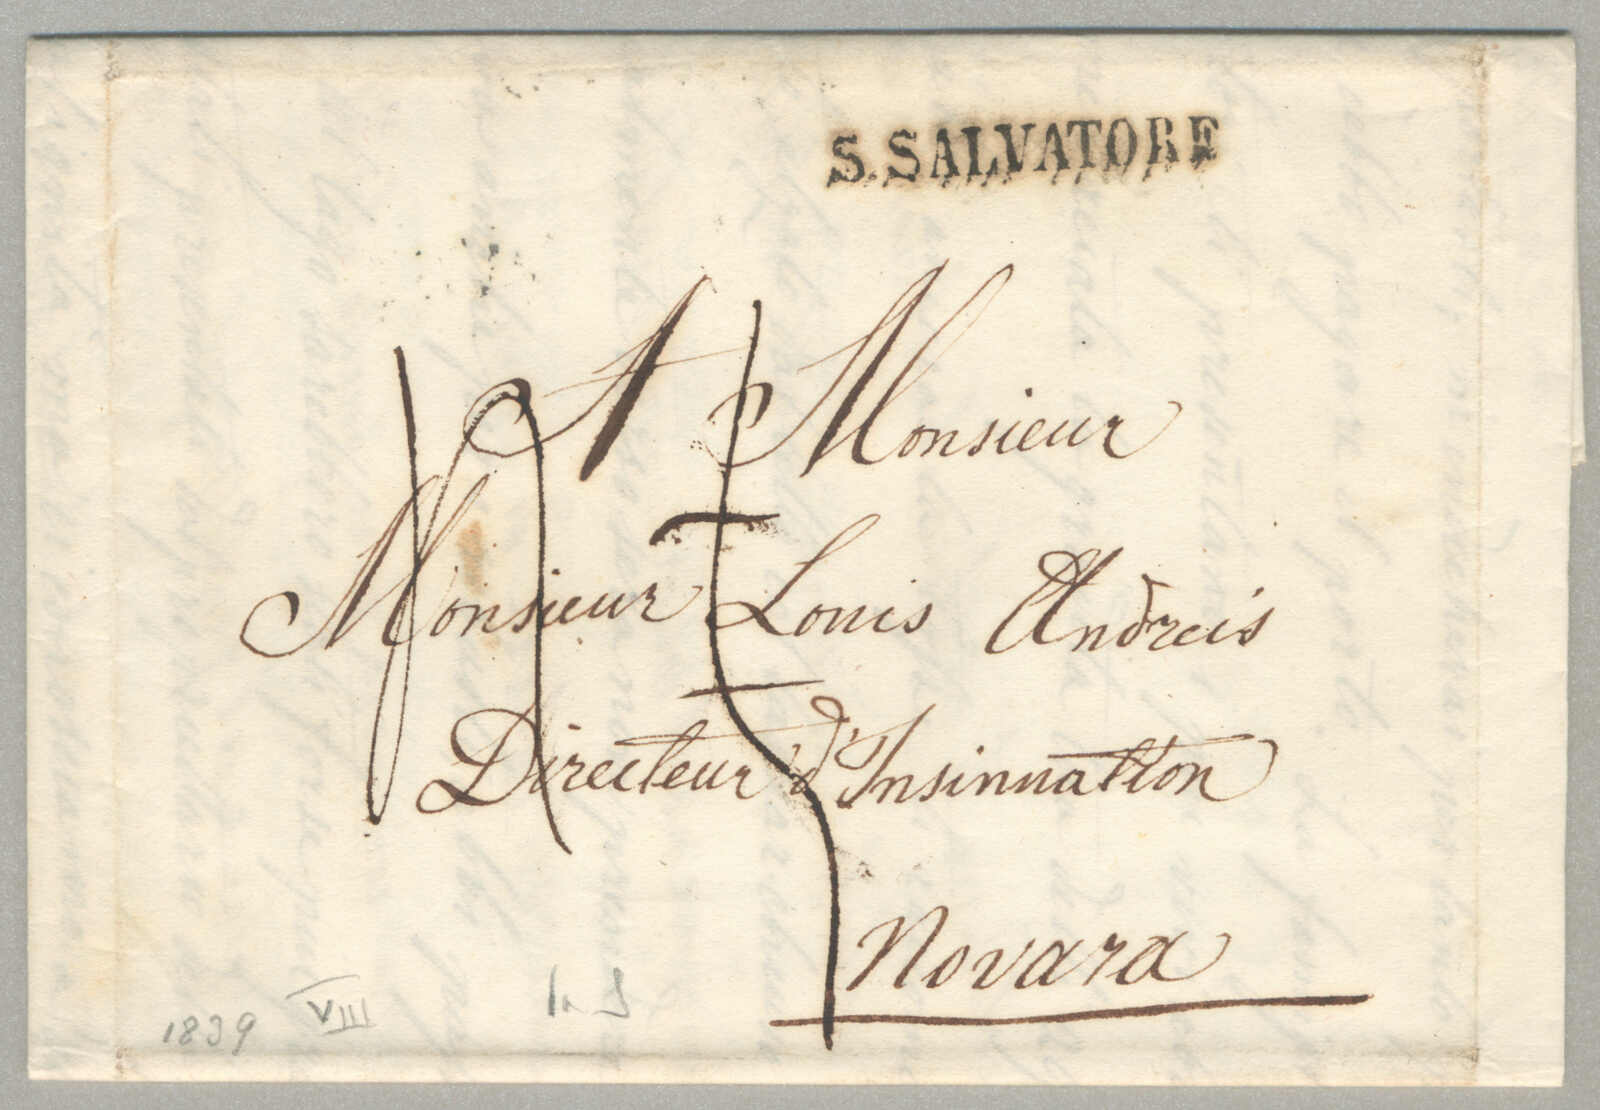 S. SALVATORE
A Monsieur
Monsieur Louis Andreis
Directeur d'Insinuation
Novara
1839 VIII